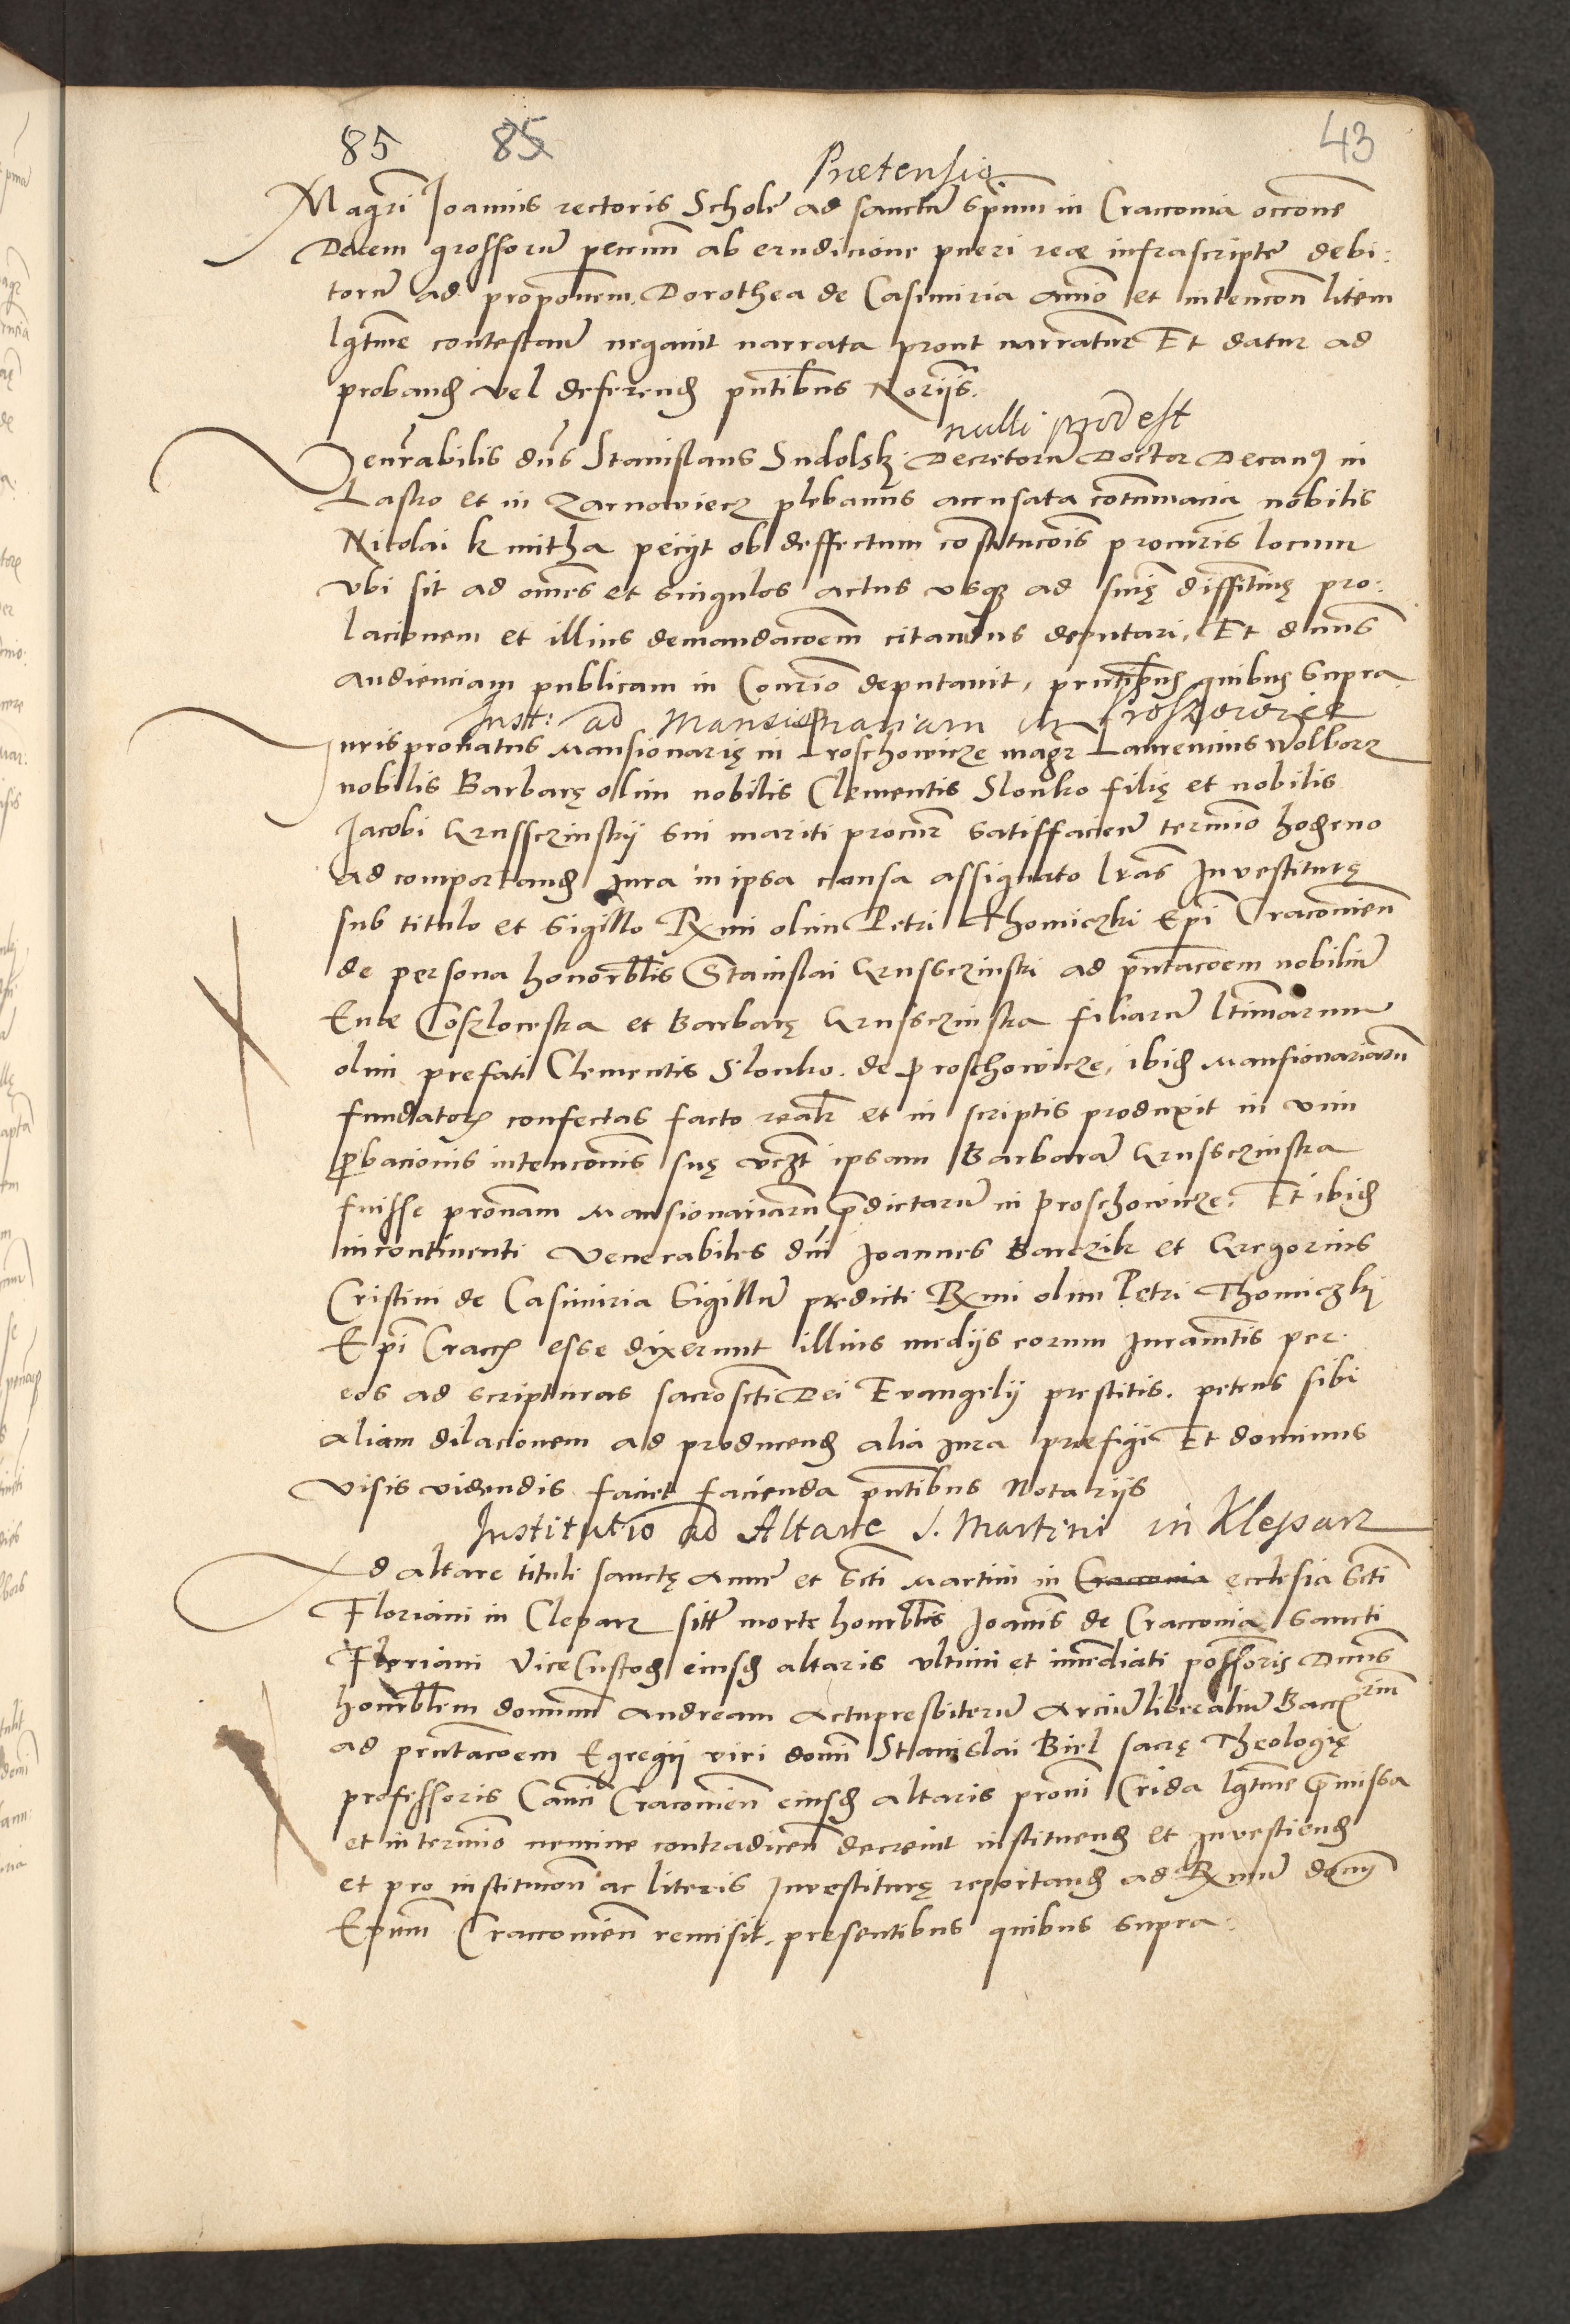 85 85 43
Pretensio
Magri Joannis rectoris Schole ad sanctu Spum in Cracovia occone
Decem grossoru pecunii ab erudicione pueri ree infrascripte debi:
toru ad proponem. Dorothea de Casimiria animo et intencon litem
lgtme contestan negavit narrata prout narrantur Et datur ad
proband vel deferend pntibus Norijs.
nulli prodest
Venerabilis dns Stanislaus Sudolskj Decretoru Doctor Decanus in
Lasko et in Zarnowiecz plebanus accusata cotumacia nobilis
Nicolai kmitha peciyt ob deffectum constitucois procuris locum
vbi sit ad omes et singulos actus vsque ad snię diffitiuę pro:
lacionem et illius demandacoem citandus deputari, Et dnus
audienciam publicam in Consrio deputauit, pntibus quibus supra
Instt: ad Mansionariam in Proszowice
Jurispronatus Mansionarię in Proschowicze magr Laurencius Wolborz
nobilis Barbarę olim nobilis Clementis Slonko filię et nobilis
Jacobi Grussczinskij sui mariti procur satisfacien termino hodierno
ad comportand Jura in ipsa causa assignato lras Investiturę
sub titulo et sigillo Rmi olim Petri Thomiczki Epi Cracovien
de persona honorblis Stanislai Grussczinski ad pntacoem nobiliu
Eue Coslowska et Barbarę Grussczinska filiaru ltimarum
olim prefati Clementis Slonko. de Proschowicze, ibid Mansionariaru
fundatoris confectas facto realr et in scriptis produxit in vim
pbacionis intencionis suę vczt ipsam Barbara Grussczinska
fuisse pronam Mansionariaru pdictaru in Proschowicze. Et ibid
incontinenti Venerabiles dni Joannes Barczik et Gregorius
Cristini de Casimiria Sigillu predicti Rmi olim Petri Thomiczkj
Epi Cracov esse dixerunt illius medijs eorum Juramtis per
eos ad scripturas sacroscti Dei Evangelij prestitis. petens sibi
aliam dilacionem ad producend alia Jura prefigi Et dominus
visis videndis faciet facienda pntibus Notarijs
Institutio ad Altare S. Martini in Kleparz
Ad altare tituli sanctę Anne et Scti Martini in Cracovia ecclesia Scti
Floriani in Clepars sitt morte honorblis Joanis de Cracovia sancti
Floriani ViceCustod eiusd altaris vltimi et imediati possoris Dnus
honorblem dominum Andream Actupresbiteru Arciu liberaliu Baccrium
ad pntacoem Egregij viri domi Stanislai Biel sacrę Theologię
professoris Canci Cracovien eiusd altaris proni Crida lgtme pmissa
et in termino nemine contradicen decreuit instituend et Inuestiend
et pro institucon ac literis Inuestiturę reportand ad Rmu dnum
Epum Cracovien remisit. presentibus quibus supra.